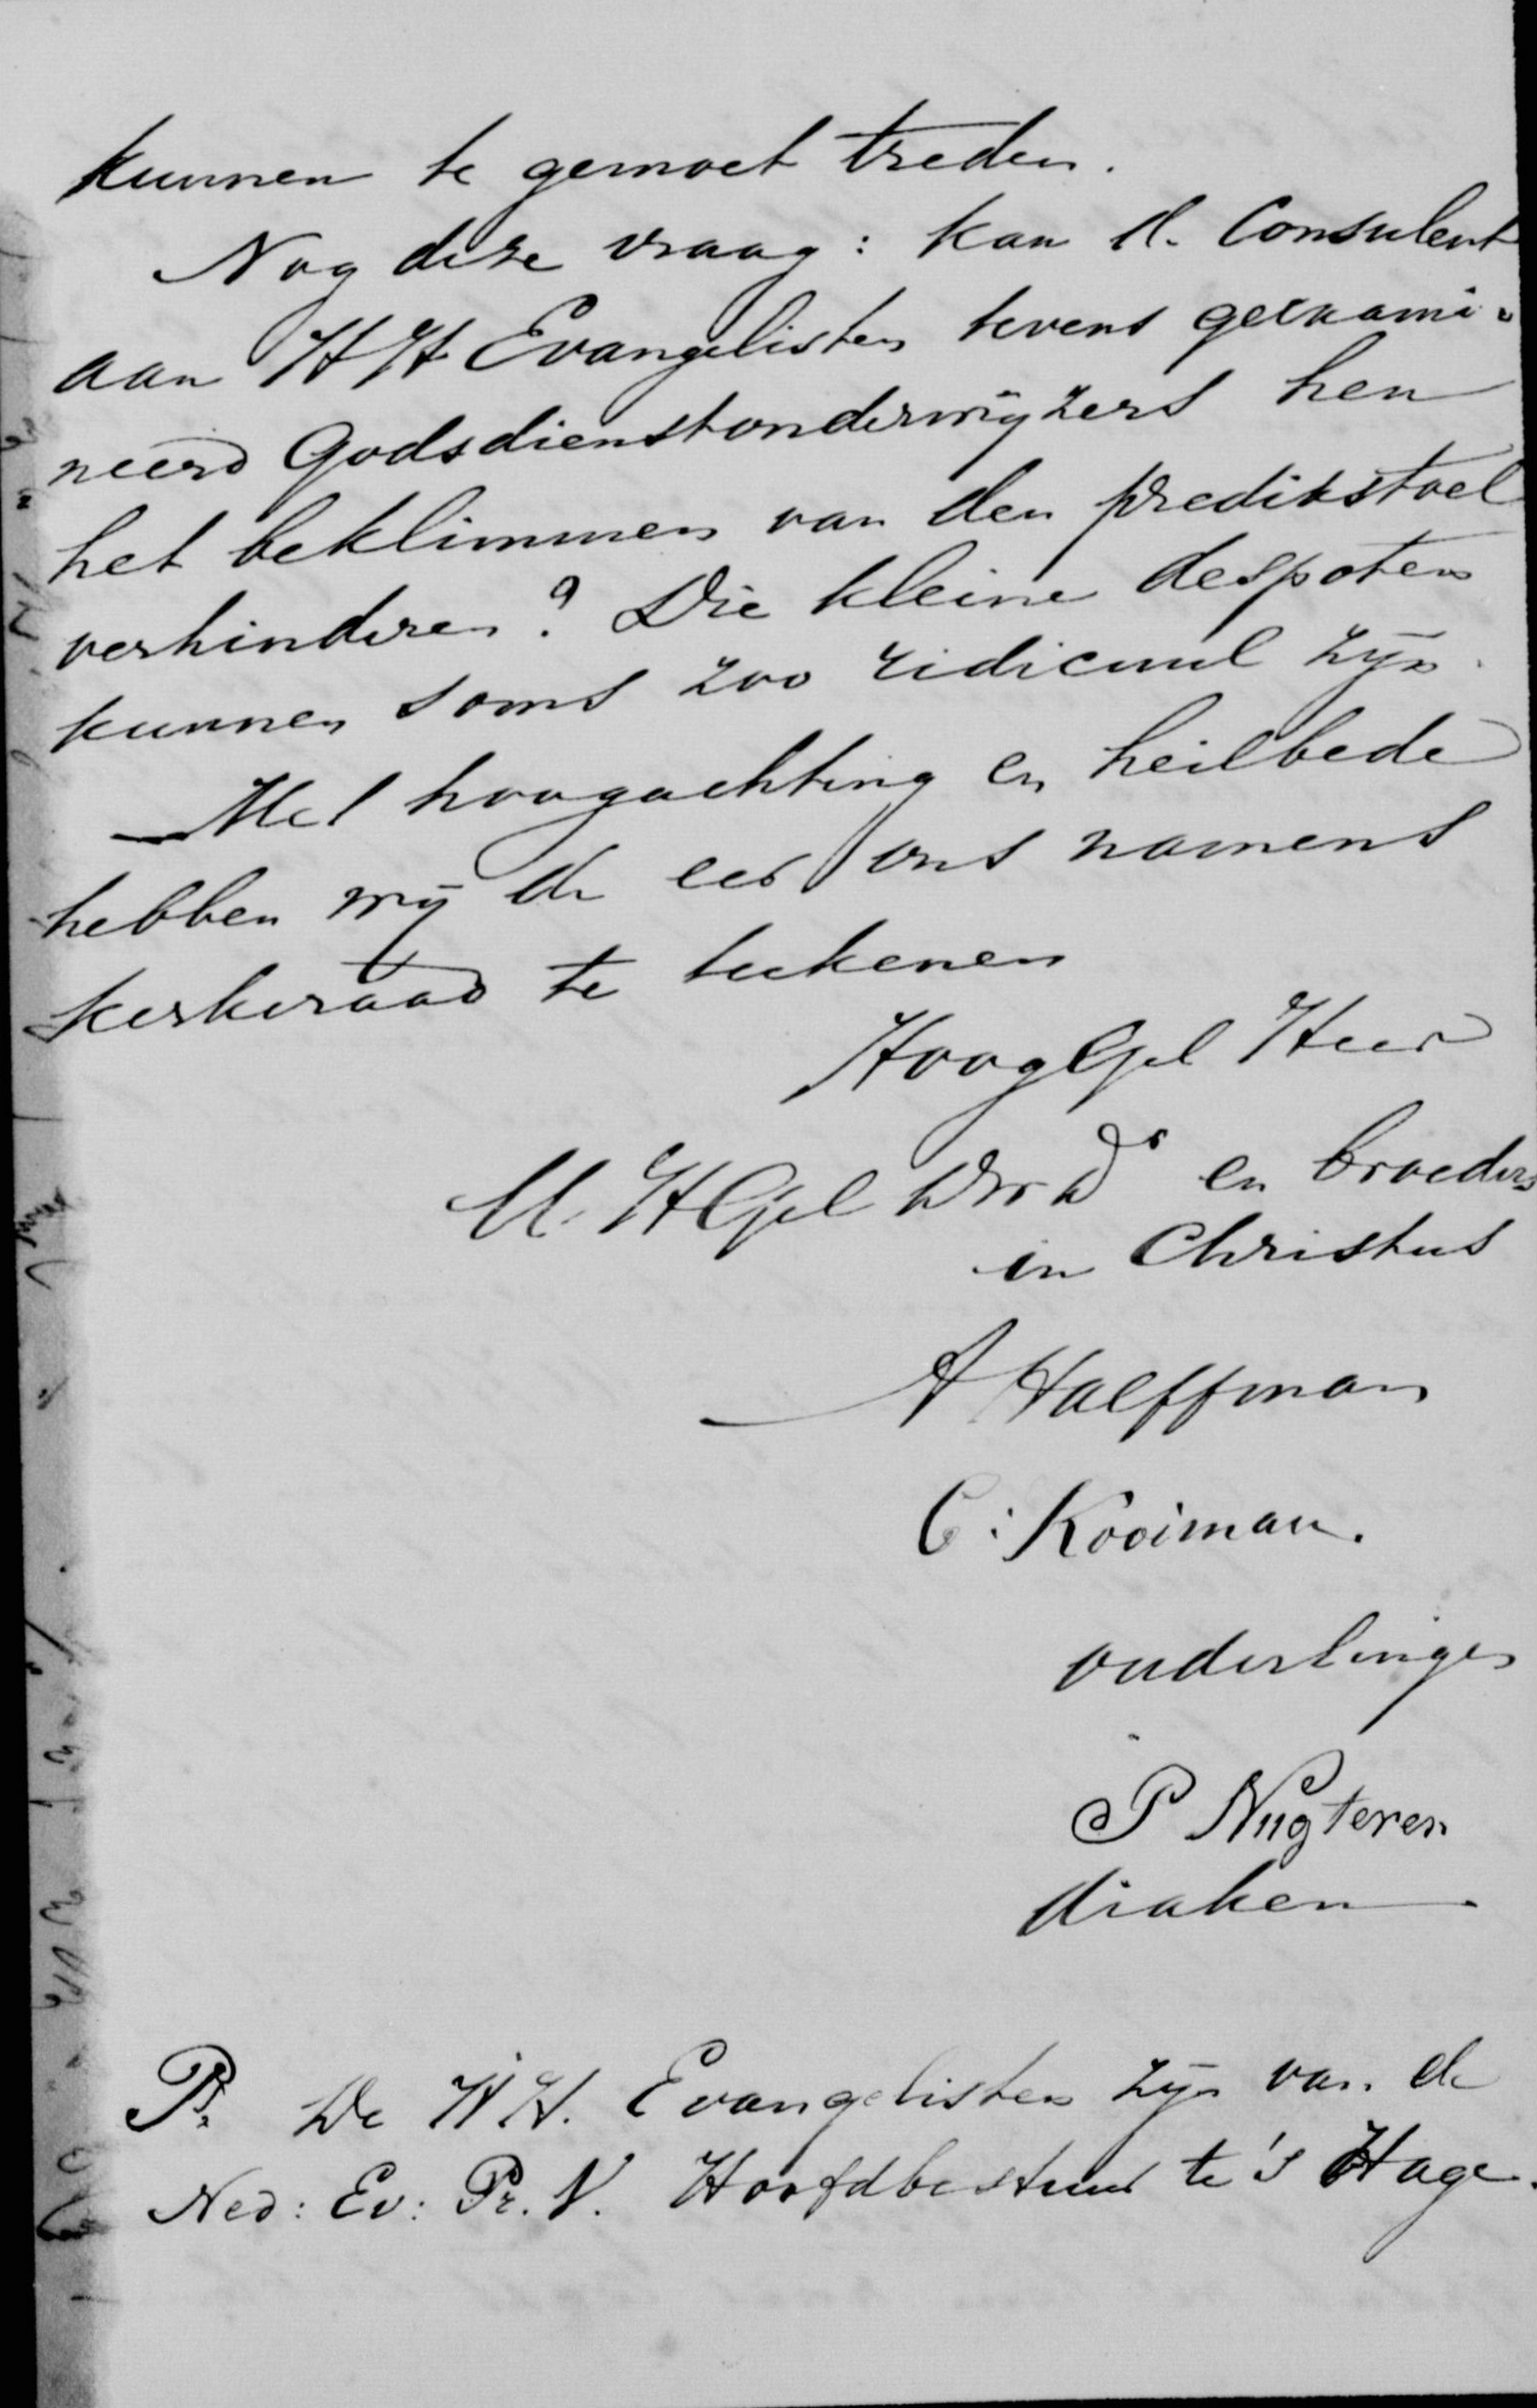 kunnen te gemoet treden.
Nog deze vraag: kan d. Consulent
aan HH Evangelisten tevens geexami-
neerd Godsdienstonderwijzers hen
het beklimmen van den predikstoel
verhinderen? Die kleine despoten
kunnen soms zoo ridicuul zijn.
Met hoogachting en heilbede
hebben wij de eer ons namens
kerkeraad te teekenen
HoogEgel Heer
U. HEgel dwd en broeders
in Christus
A Halffman
C: Kooiman.
ouderlingen
P Nugteren
diaken
Ps. De HH. Evangelisten zijn van de
Ned: Ev: Pr. V. Hoofdbestuur te 's Hage.